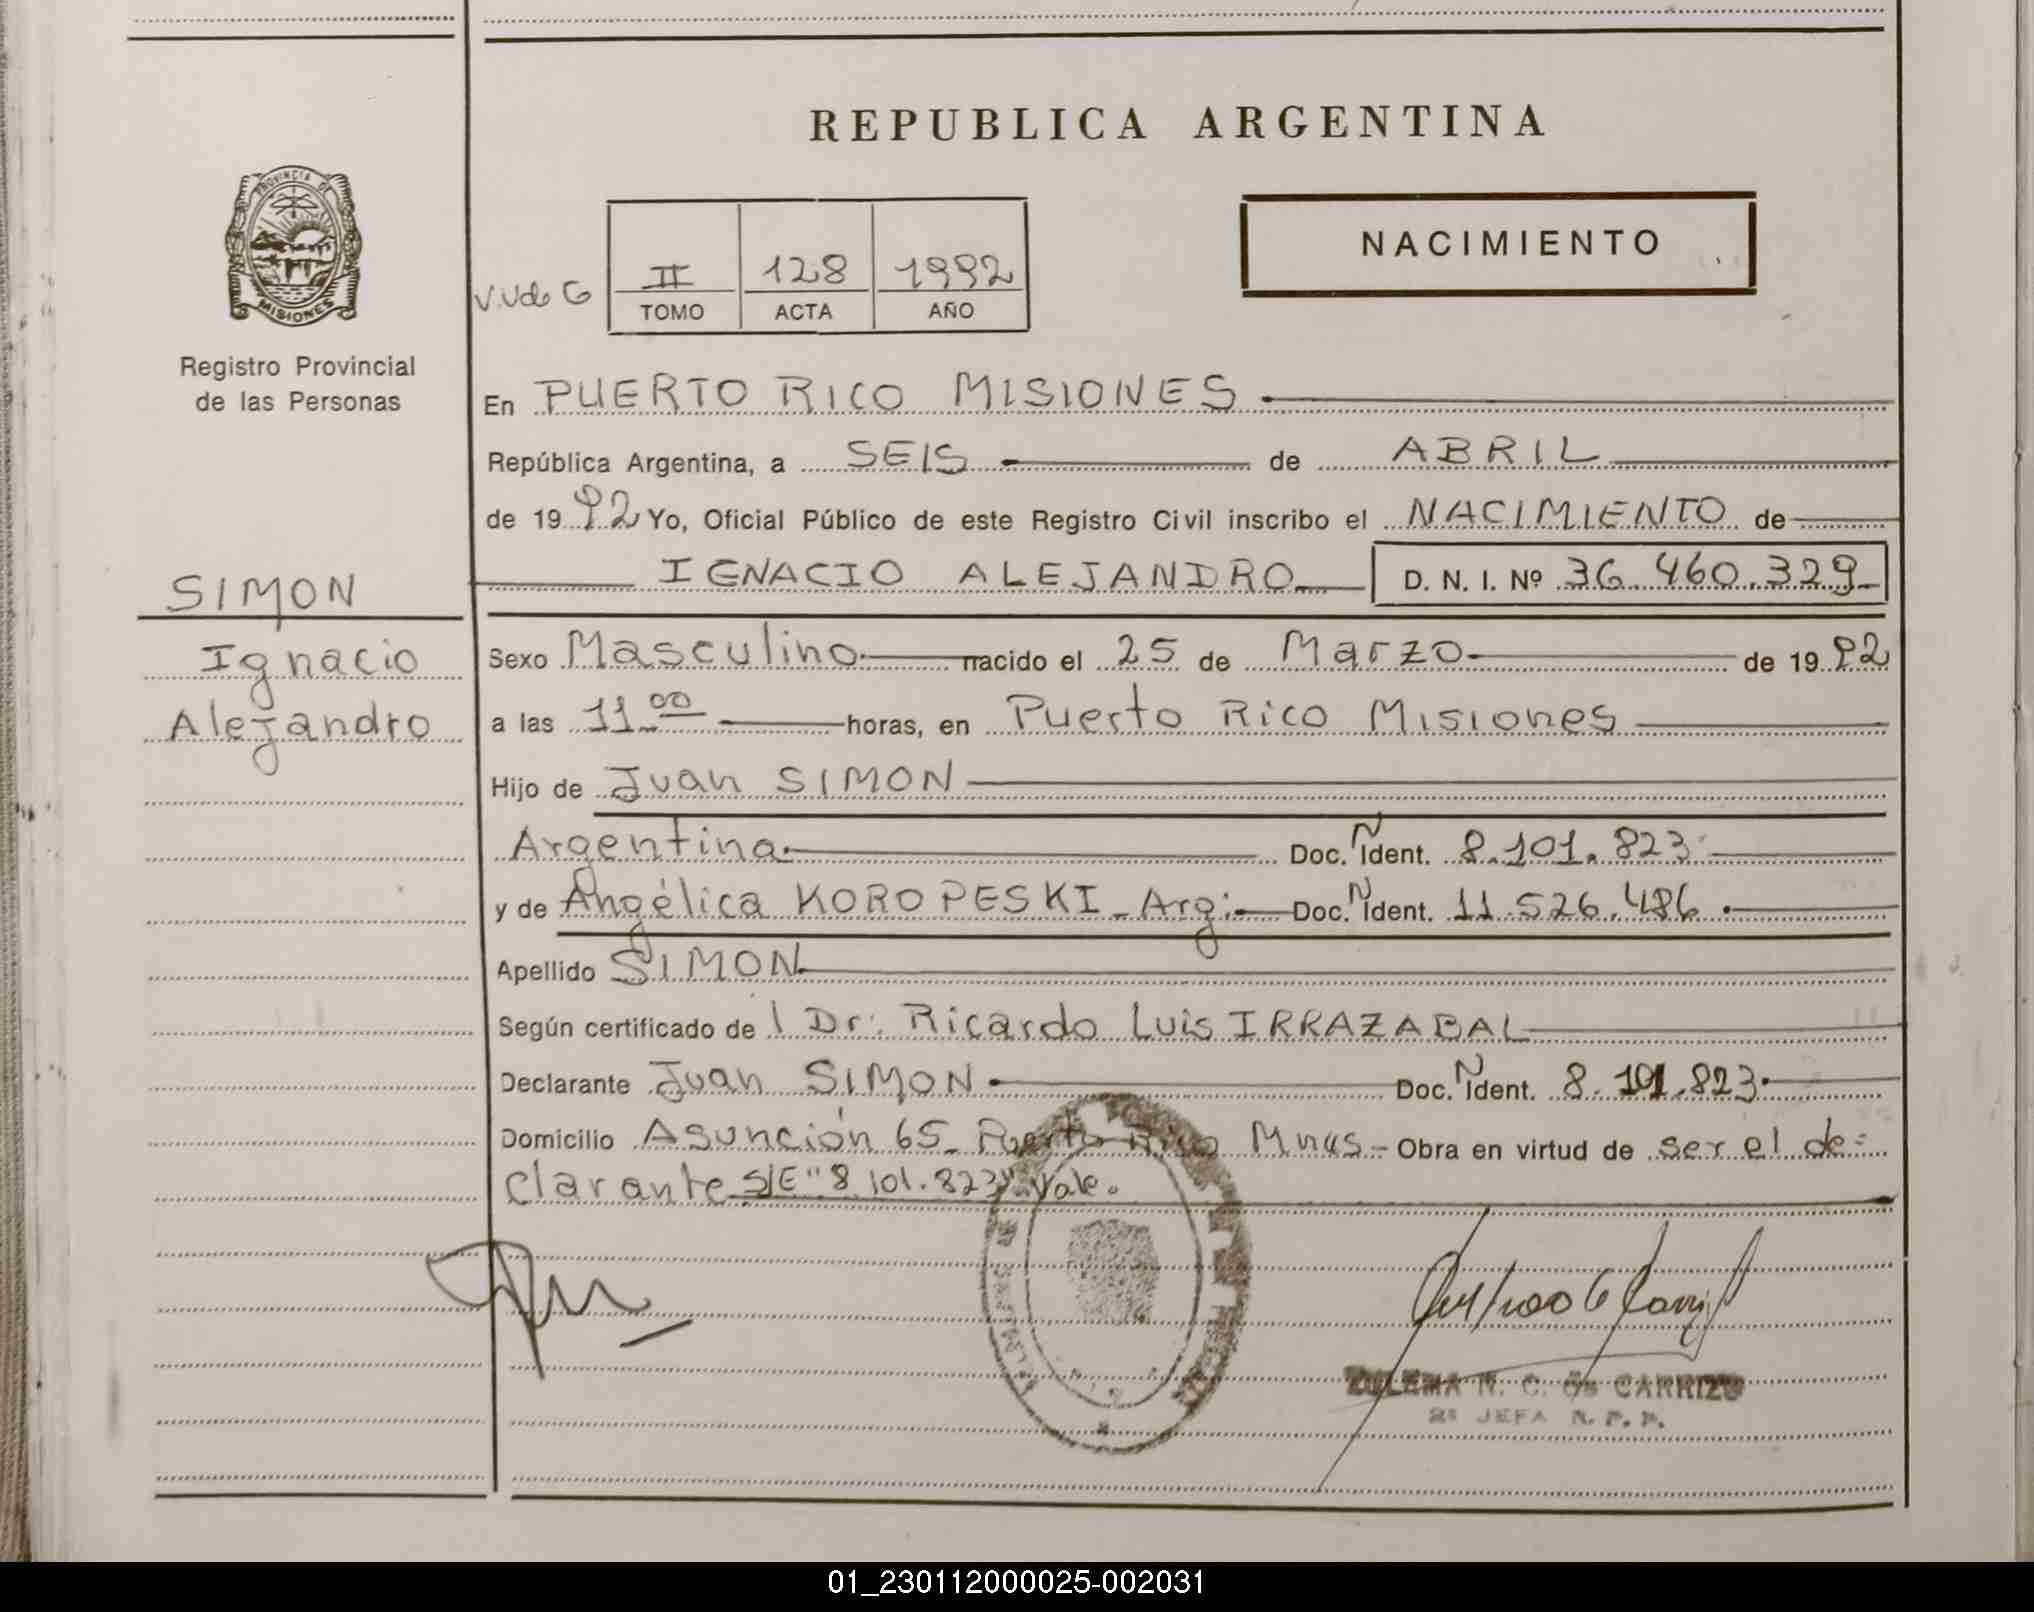 REPUBLICA ARGENTINA
PROVINCIA DE
MISIONES
Registro Provincial
de las Personas
NACIMIENTO
II 128 1992
TOMO ACTA AÑO
En PUERTO RICO MISIONES
República Argentina, a SEIS de ABRIL
de 1992 Yo, Oficial Público de este Registro Civil inscribo el NACIMIENTO de
IGNACIO ALEJANDRO D. N. I. Nº 36.460.329
SIMON
Ignacio
Alejandro
Sexo Masculino nacido el 25 de Marzo de 1992
a las 11 00 horas, en Puerto Rico Misiones
Hijo de Juan SIMON
Argentina. Doc. N Ident. 8.101.823
y de Angélica KOROPESKI - Arg. Doc. N Ident. 11.526.486.
Apellido SIMON
Según certificado de l Dr. Ricardo Luis IRRAZABAL
Declarante Juan SIMON Doc. N Ident. 8.101.823.
Domicilio Asunción 65 - Puerto Rico Mnes - Obra en virtud de ser el de=
clarante S/E "8.101.823" Vale.
ZULEMA N. C. de CARRIZO
2ª JEFA R. P. P.
01_230112000025-002031